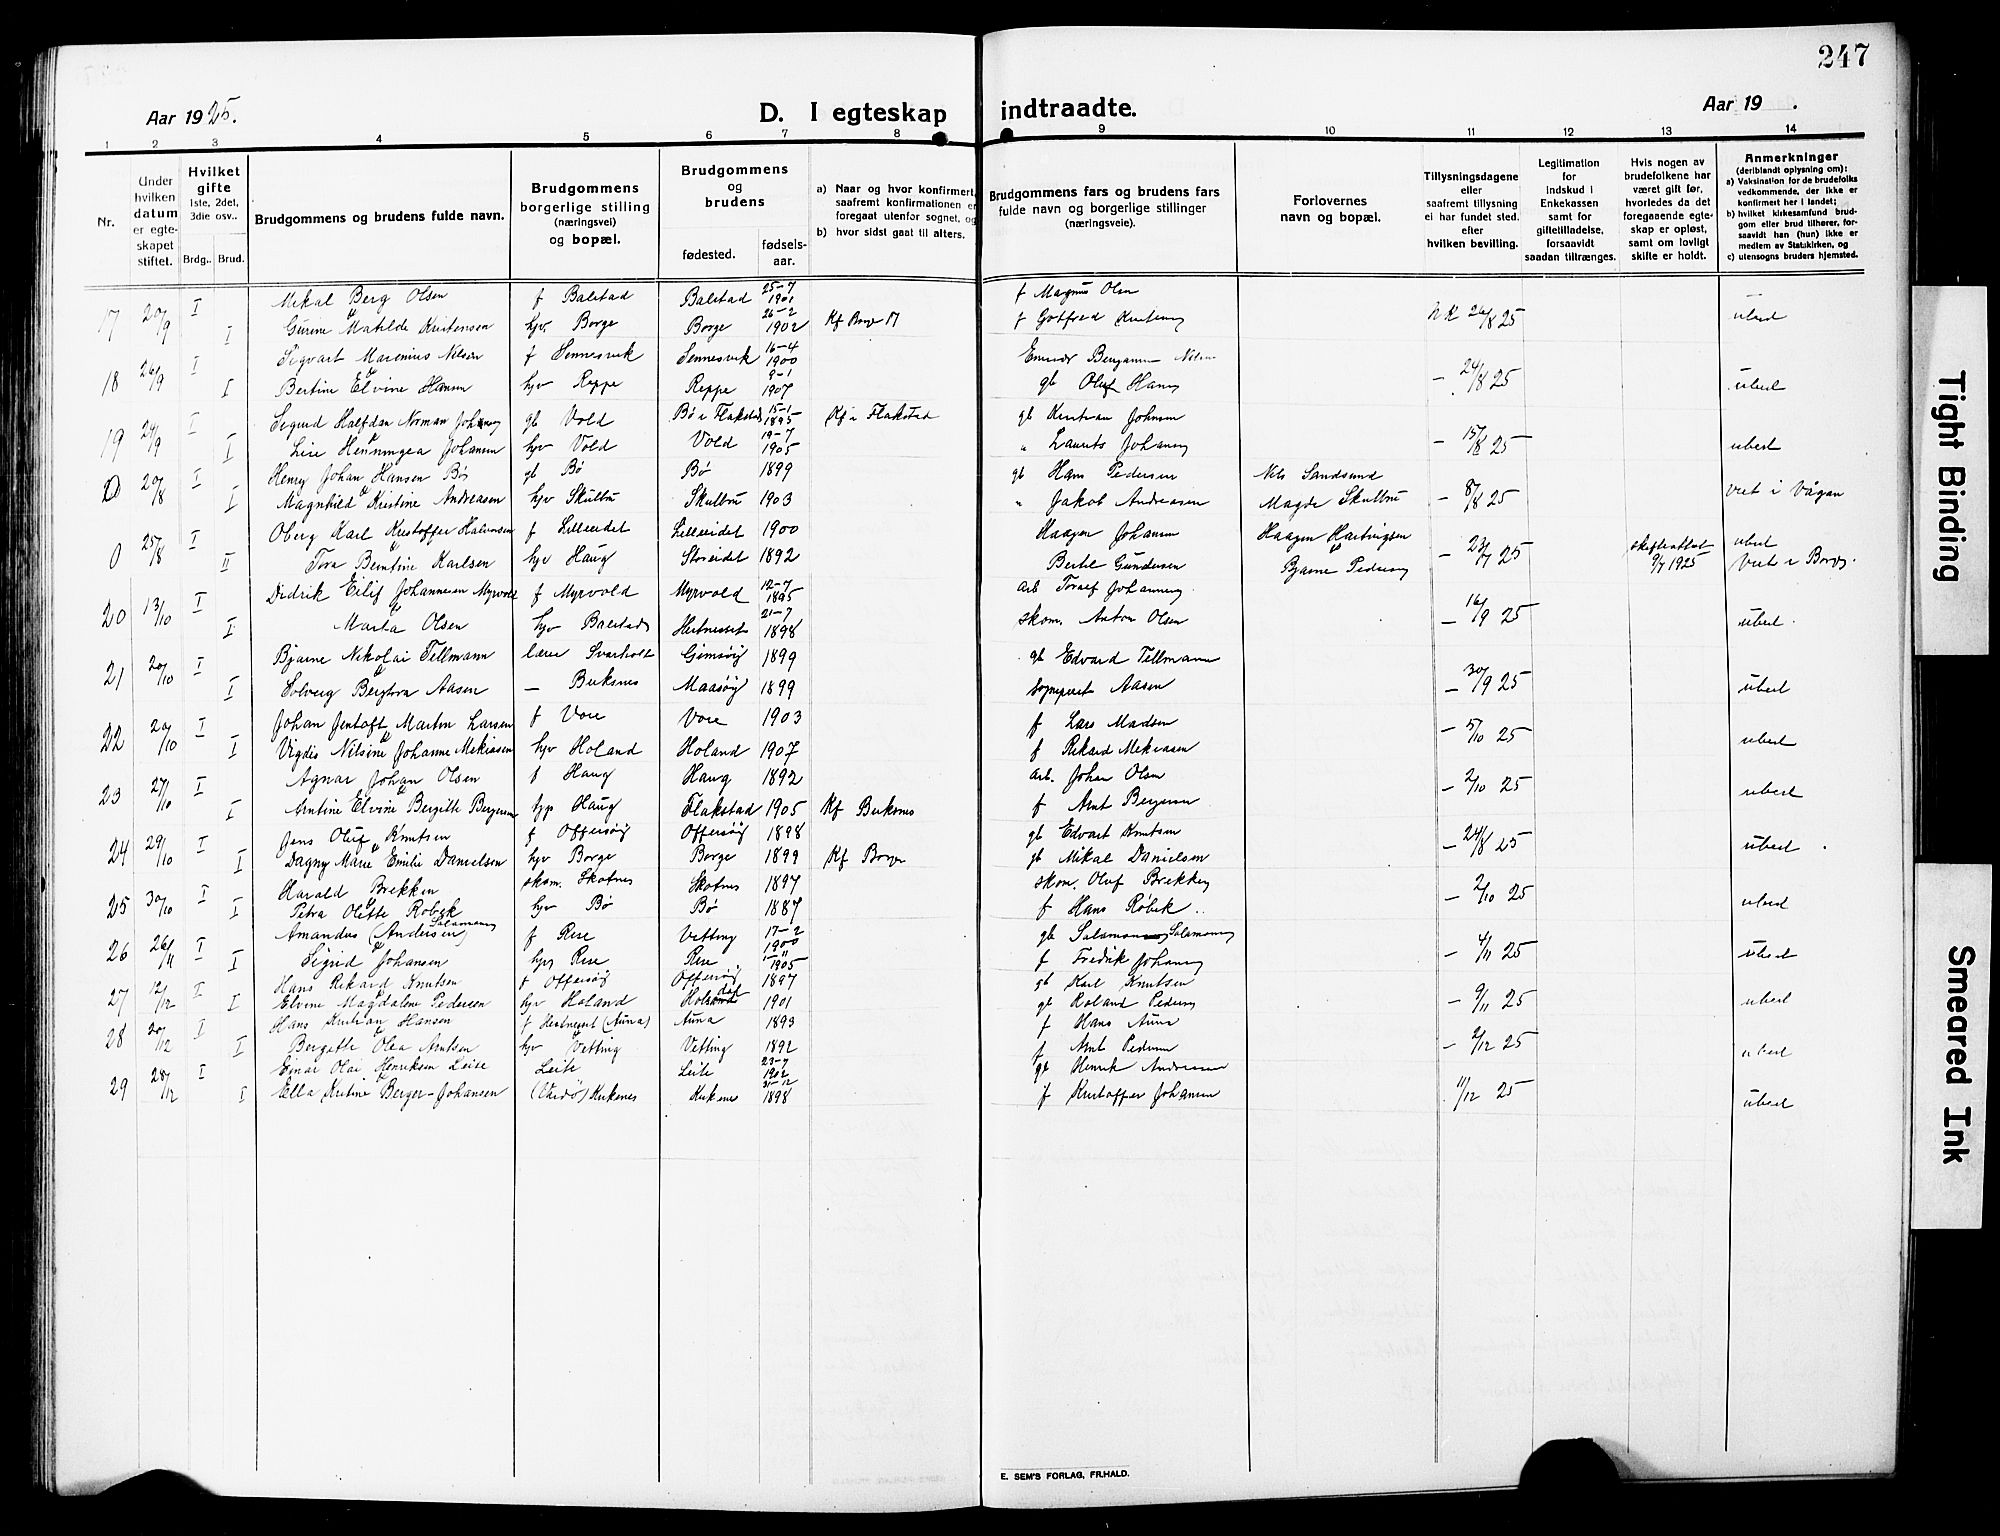 247
Aar 1925.
D. I egteskap indtraadte.
Aar 19 .
1 2 3 4 5 6 7 8 9 10 11 12 13 14
Nr.
Under hvilken datum er egteskapet stiftet.
Hvilket gifte 1ste, 2det, 3die osv..
Brdg.. Brud.
Brudgommens og brudens fulde navn.
Brudgommens borgerlige stilling (næringsvei) og bopæl.
Brudgommens og brudens
fødested. fødsels-aar.
a) Naar og hvor konfirmert, saafremt konfirmationen er foregaat utenfor sognet, og
b) hvor sidst gaat til alters.
Brudgommens fars og brudens fars fulde navn og borgerlige stillinger (næringsveie).
Forlovernes navn og bopæl.
Tillysningsdagene eller saafremt tillysning ei har fundet sted. efter hvilken bevilling.
Legitimation for indskud i Enkekassen samt for giftetilladelse, forsaavidt saadan tiltrænges.
Hvis nogen av brudefolkene har været gift før, hvorledes da det foregaaende egteskap er opløst, samt om lovligt skifte er holdt.
Anmerkninger (deriblandt oplysning om):
a) Vaksination for de brudefolks vedkommende, der ikke er konfirmert her i landet;
b) hvilket kirkesamfund brudgom eller brud tilhører, forsaavidt han (hun) ikke er medlem av Statskirken, og
c) utensogns bruders hjemsted.
17 20/9 I Mikal Berg Olsen f Balstad Balstad 25-7 1901 f Magnus Olsen 26/8 25
I Gurine Matilde Kristensen hjv Borge Borge 26-2 1902 f Gotfred
18 26/9 I Sigvart Marenius Nilsen f Sennesvik Sennesvik 16-4 1900 Benjamin Nilsen - 24/8 25
I Bertine Elvine Hansen hjv Reppe Reppe 9-1 1907 gb Oluf Hansen
19 24/9 I Sigurd Halfdan Norman gb Vold Bø i Flakstad 15-1 1895 Kf i Flakstad gb Kristian Johnsen - 15/8 25
I Lise Henningea Johansen hjv Vold Vold 19-7 1905 " Laurits Johansen
0 20/8 I Henry Johan Hansen Bø gb Bø Bø 1899 gb Hans Pedersen Nils Sandsund - 8/8 25 viet i Vågan
I Magnhild Kristine Andreasen hjv Skulbru Skulbru 1903 " Jakob Andreasen Magde Skulbru
0 25/8 I Oberg Karl Kristoffer Halvorsen f Lilleeidet Lilleeidet 1900 Haagen Johansen Haagen Hartvigsen - 23/7 25
II Tora Berntine Karlsen hjv Haug Storeidet 1892 Bertel Gundersen Bjarne Pedersen 9/7 1925 Viet i Borge.
20 13/10 I Didrik Eilif Johannesen Myrvold f Myrvold Myrvold 12-7 1895 arb - 16/9 25
I Marta Olsen hjv Balstad Hestneset 21-7 1898 skom. Anton Olsen
21 20/10 I Bjarne Nikolai Tellmann lærer Svarholt Gimsøy 1899 gb Edvard Tellmann - 30/9 25
I Solveig Bergtora Aasen - Buksnes Maasøy 1899 sogneprest Aasen
22 20/10 I Johan Jentoft Martin Larsen f Vore Vore 1903 f Lars Madsen - 5/10 25
I Vigdis Nilsine Johanne Mekiasen hjv Holand Holand 1907 f Rikard Mekiasen
23 27/10 I Agnar Johan Olsen f Haug Haug 1892 arb. Johan Olsen - 2/10 25
I Antine Elvine Bergitte hjp Haug Flakstad 1905 Kf Buksnes f Arnt
24 29/10 I Jens Oluf Knutsen f Offersøy Offersøy 1898 gb Edvart Knutsen - 24/8 25
I Dagny Marie Emilie Danielsen hjv Borge Borge 1899 Kf Borge gb Mikal Danielsen
25 30/10 I Harald Brekken skom. Skotnes Skotnes 1897 skom. Oluf Brekken - 2/10 25
I Petra Olette Robek hjv Bø Bø 1887 f Hans Røbek
26 26/11 I Amandus (Andersen) Salamonsen f Rise Vetting 17-2 1900 gb Salamon Salamonsen - 4/11 25
I Sigrid Johansen hjv Rise Rise 1-11 1905 f Fredrik Johansen
27 12/12 I Hans Rikard Knutsen f Offersøy Offersøy 1897 gb Karl Knutsen - 9/11 25
I Elvine Magdalene Pedersen hjv Holand 1901 gb Roland Pedersen
28 20/12 I Hans Kristian Hansen f Hestneset (Auna) Auna 1893 f Hans Auna - 2/12 25
I Bergitte Olea Arntsen hjv Vetting Vetting 1892 f Arnt Pedersen
29 28/12 I Einar Olai Henriksen Leite Leite Leite 23-7 1902 gb Henrik Andreasen 11/12 25
I Ella Kristine Berger-Johansen (Vardø) Kirkenes Kirkenes 21-12 1898 f Kristoffer Johansen
E. SEM'S FORLAG, FR.HALD.
Tight Binding
Smeared Ink